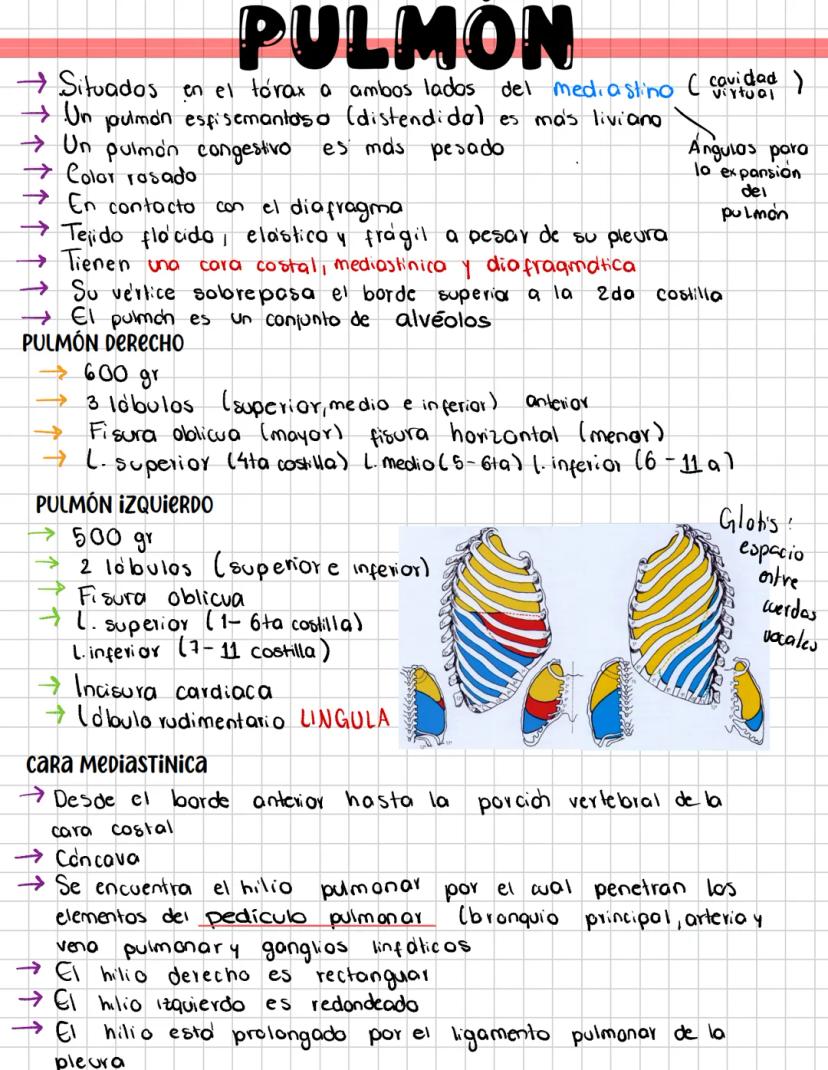 PULMÓN
→ Situados en el tórax a ambos lados del mediastino ( cavidad virtual )
→ Un pulmón esfisemantoso (distendido) es más liviano
Ángulos para
la expansión
del
pulmón
→ Un pulmón congestivo es más pesado
→ Color rosado
→ En contacto con el diafragma
→ Tejido flácido, elástico y frágil a pesar de su pleura
→ Tienen una cara costal, mediastínica y diafragmática
→ Su vértice sobrepasa el borde superior a la 2da costilla
→ El pulmón es un conjunto de alvéolos
PULMÓN DERECHO
→ 600 gr
→ 3 lóbulos (superior, medio e inferior) anterior
→ Fisura oblicua (mayor) fisura horizontal (menor)
→ L. superior (4ta costilla) L. medio (5-6ta) l. inferior (6 - 11 a)
PULMÓN IZQUIERDO
→ 500 gr
→ 2 lóbulos (superior e inferior)
→ Fisura oblicua
→ L. superior (1- 6ta costilla)
L. inferior (7- 11 costilla)
→ Incisura cardiaca
→ Lóbulo rudimentario LINGULA
Glotis:
espacio
entre
cuerdas
vocales
CARA MEDIASTINICA
→ Desde el borde anterior hasta la porción vertebral de la
cara costal
→ Cóncava
→ Se encuentra el hilio pulmonar por el cual penetran los
elementos del pedículo pulmonar (bronquio principal, arteria y
vena pulmonar y ganglios linfáticos
→ El hilio derecho es rectangular
→ El hilio izquierdo es redondeado
→ El hilio está prolongado por el ligamento pulmonar de la
pleura